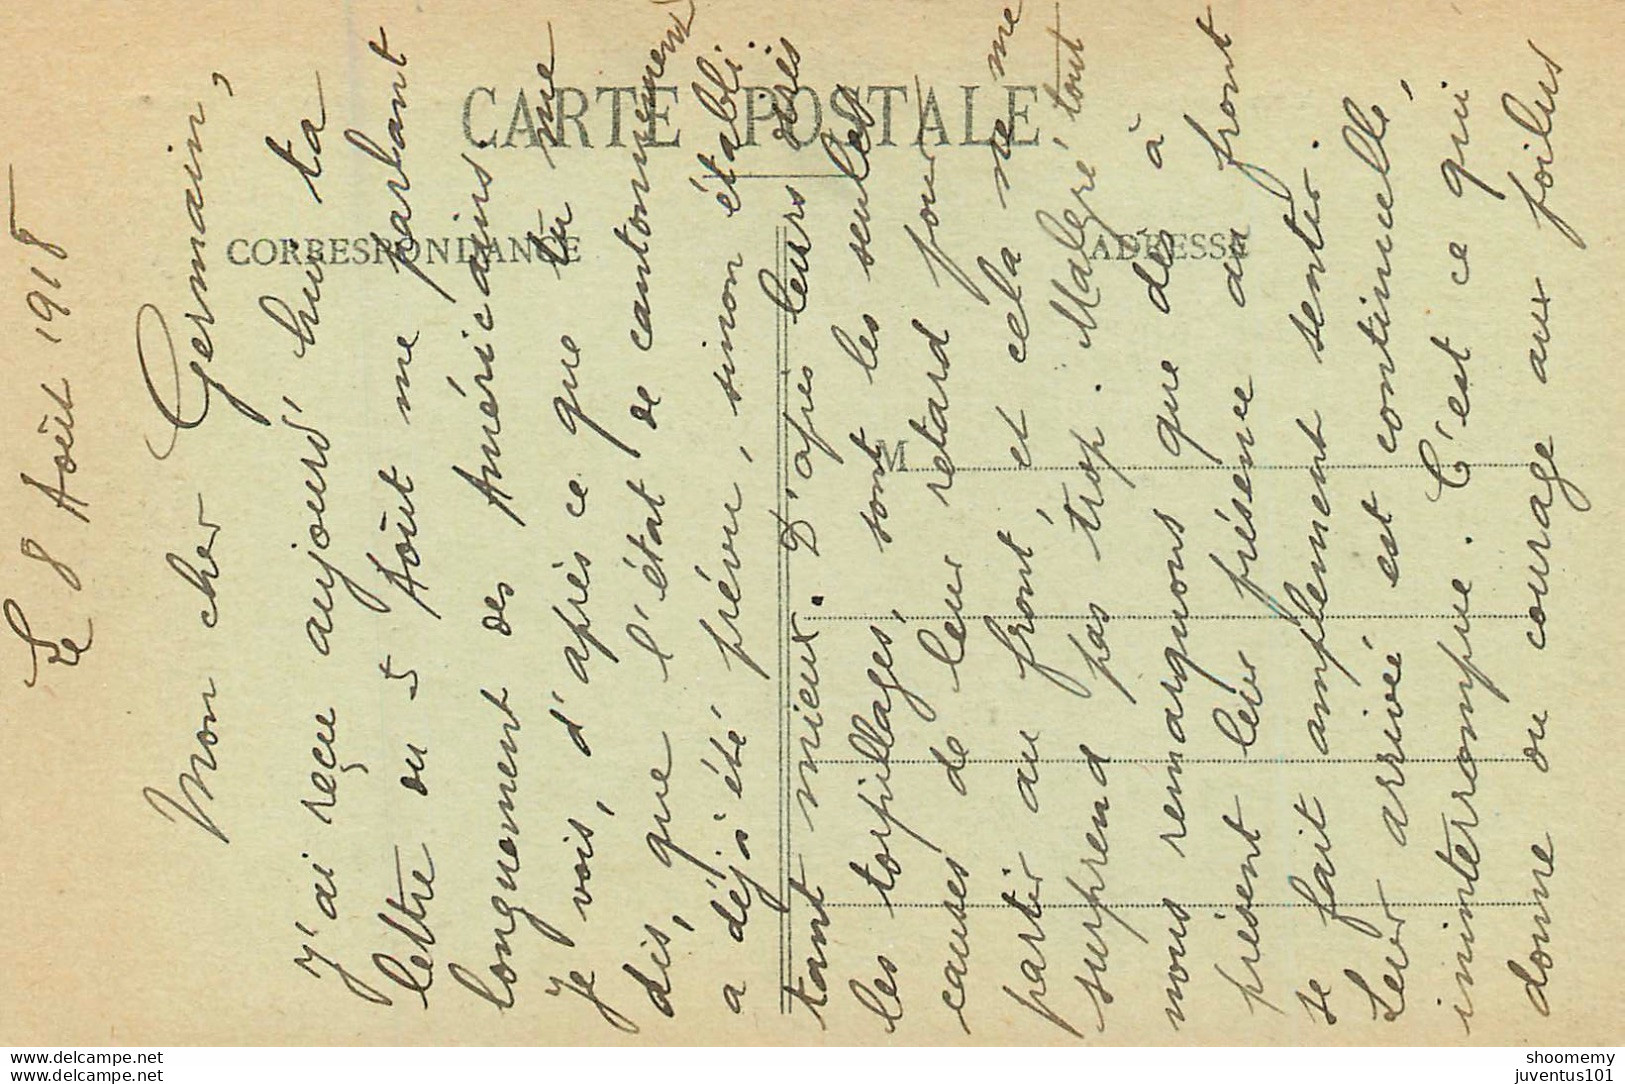 CARTE POSTALE
CORRESPONDANCE
ADRESSE
M
Le 8 Août 1918
Mon cher Germain,
J'ai reçu aujourd'hui ta
lettre du 5 Août me parlant
longuement des Américains.
Je vois, d'après ce que tu me
dis, que l'état de cantonnement
a déjà été prévu, sinon établi..
tant mieux. D'apres leurs dries
les torpillages, sont les seules
causes de leur retard pour
partir au front, et cela ne me
surprend pas trop. Malgré tout
nous remarquons que dès à
présent leur présence au front
se fait amplement sentir.
Leur arrivée est continuelle,
ininterrompue. C'est ce qui
donne du courage aux poilus
www.delcampe.net
www.delcampe.net
shoomemy
juventus101